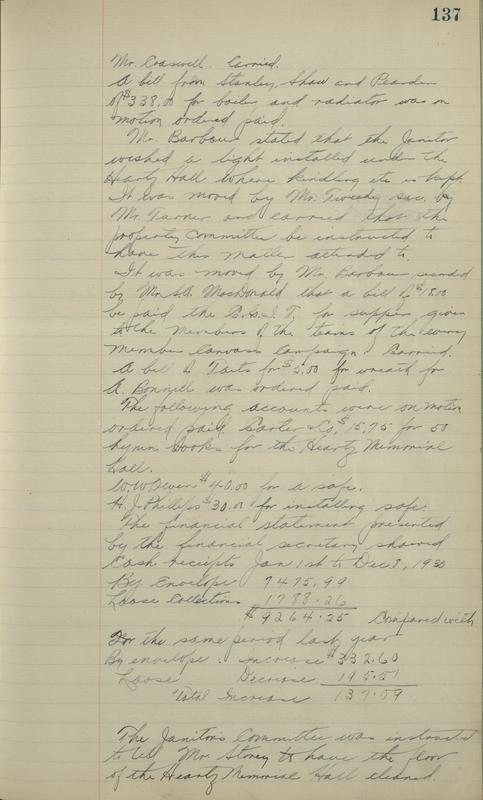 137
Mr. Craswell. Carried.
A bill from Stanley, Shaw and Pearden
of $338.00 for boiler and radiator was on
motion ordered paid.
Mr. Barbour stated that the Janitor
wished a light installed under the
Heartz Hall where kindling etc is kept.
It was moved by Mr. Tweedy sec. by
Mr. Turner and carried that the
property Committee be instructed to
have this matter attended to.
It was moved by Mr. Barbour seconded
by Mr. MacDonald that a bill of $18.00
be paid the for supper given
to the Members of the teams of the every
member Canvass Campaign. Carried.
A bill of for $5.00 for wreath for
A. was ordered paid.
The following accounts were on motion
ordered paid Carter & Co, $15.75 for 50
hymn books for the Heartz Memorial
Hall.
W.W. Owen $40.00 for a safe.
H. J. Phillips $30.00 for installing safe.
The financial statement presented
by the financial secretary showed
Cash receipts Jan 1st to Dec 8, 1930
By Envelope 7475.99
Loose Collections 1788.26
$9264.25 Compared with
For the same period last year
By envelope: Increase $332.60
Loose Decrease 195.51
Total Increase 137.09
The Janitors Committee was instructed
to tell Mr. Storey to have the floor
of the Heartz Memorial Hall cleaned.